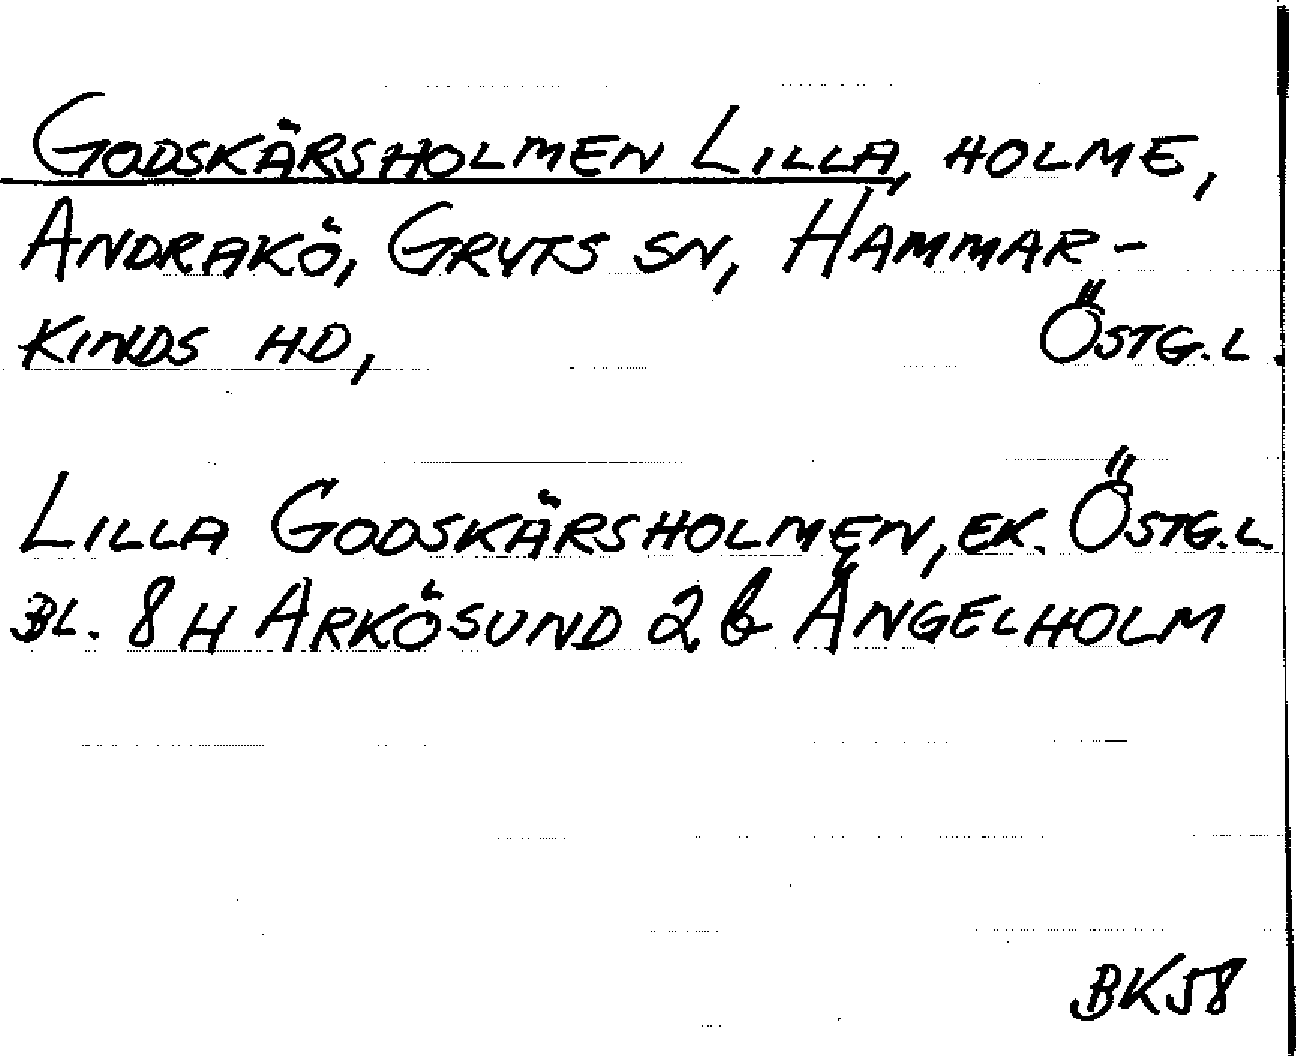 GODSKÄRSHOLMEN LILLA, HOLME,
ANDRAKÖ, GRYTS SN, HAMMAR-
KINDS HD, ÖSTG.L.
LILLA GODSKÄRSHOLMEN, EK. ÖSTG.L.
BL. 8 H ARKÖSUND 2 b ÄNGELHOLM
BK58